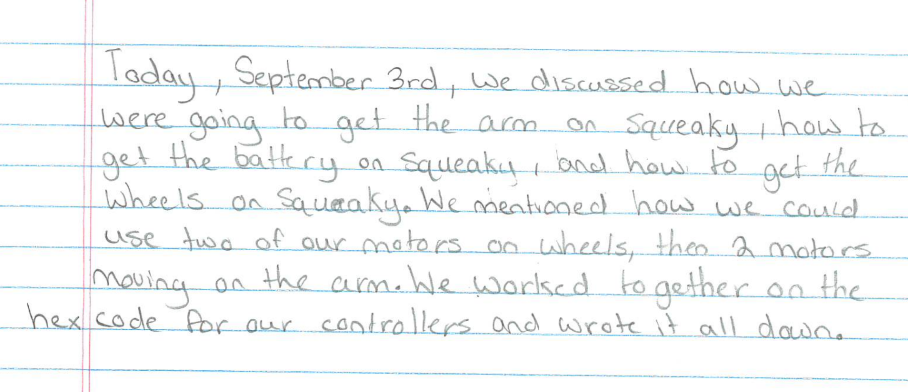 Today, September 3rd, we discussed how we
were going to get the arm on Squeaky, how to
get the battery on Squeaky, and how to get the
wheels on Squeaky. We mentioned how we could
use two of our motors on wheels, then 2 motors
moving on the arm. We worked together on the
hex code for our controllers and wrote it all down.